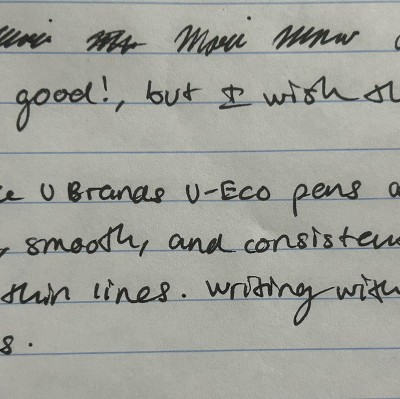 good!, but I wish th
U Brands U-Eco pens a
, smooth, and consisten
thin lines. writing with
s.